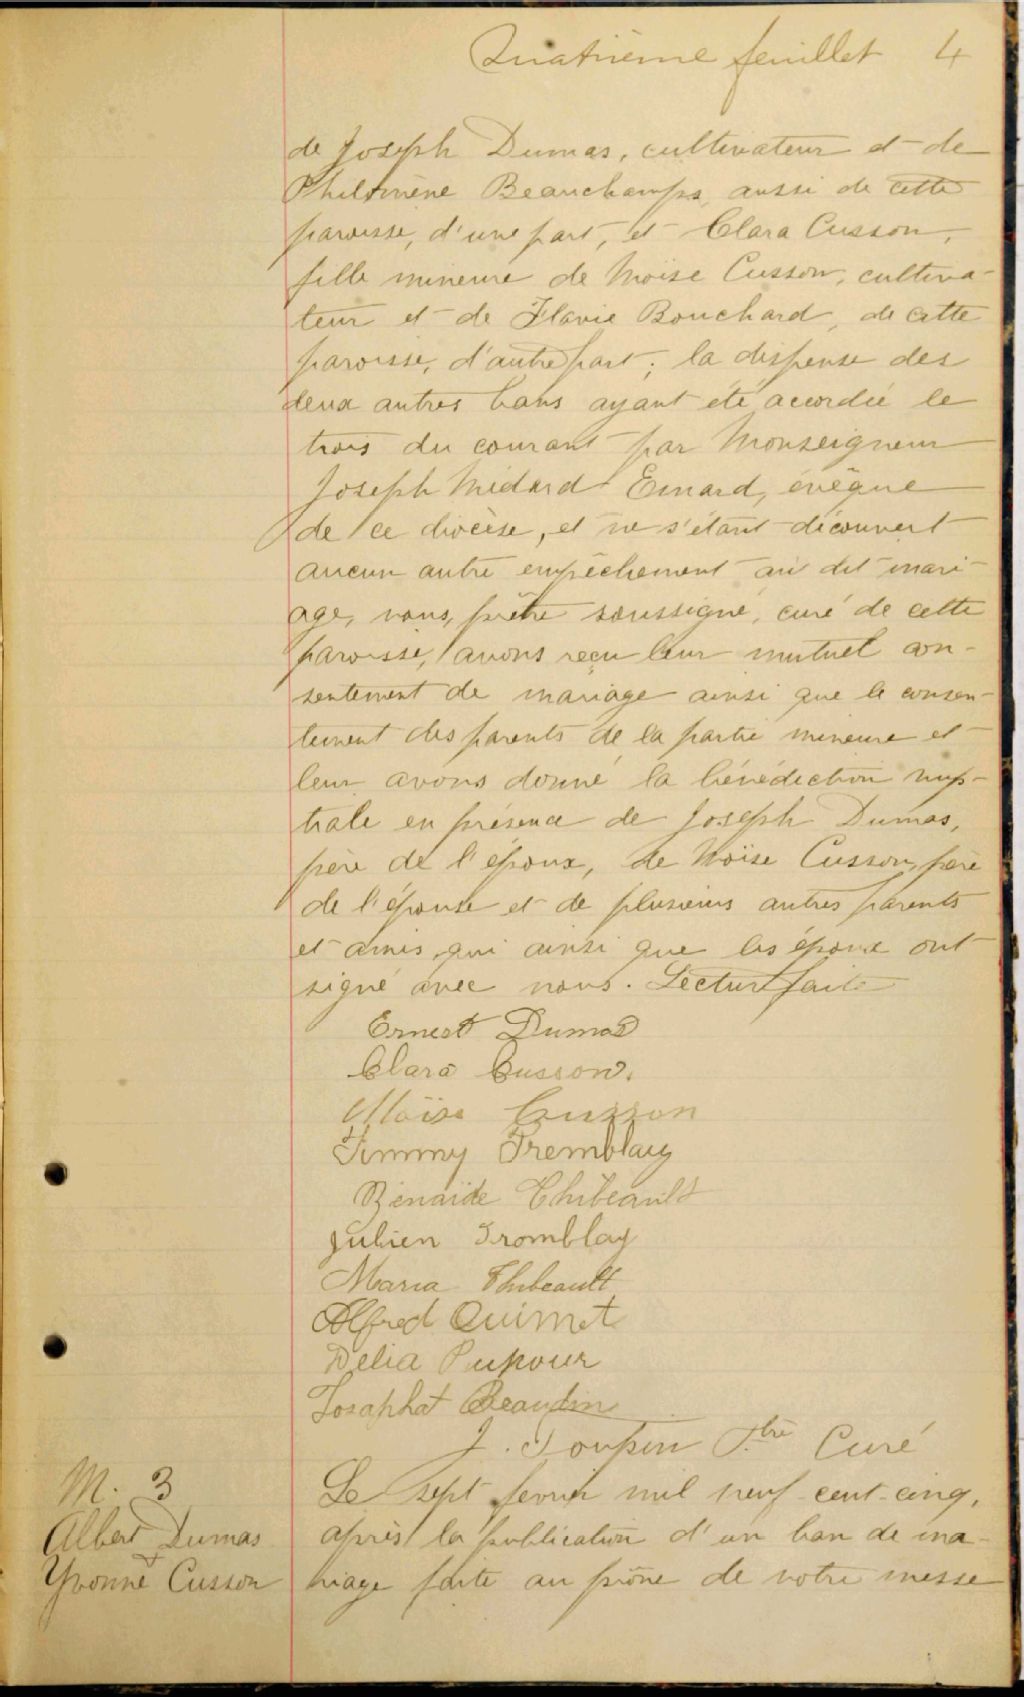 Quatrième feuillet 4
de Joseph Dumas, cultivateur et de
Philomène Beauchamps, aussi de cette
paroisse, d'une part, et Clara Cusson,
fille mineure de Moïse Cusson, cultiva-
teur et de Flavie Bouchard, de cette
paroisse, d'autre part; la dispense des
deux autres bans ayant été accordée le
trois du courant par Monseigneur
Joseph Médard Emard, évêque
de ce diocèse, et ne s'étant découvert
aucun autre empêchement au dit mari-
age, nous, prêtre soussigné, curé de cette
paroisse, avons reçu leur mutuel con-
sentement de mariage ainsi que le consen-
tement des parents de la partie mineure et
leur avons donné la bénédiction nup-
tiale en présence de Joseph Dumas,
père de l'époux, de Moïse Cusson, père
de l'épouse et de plusieurs autres parents
et amis, qui ainsi que les époux ont
signé avec nous. Lecture faite
Ernest Dumas
Clara Cusson.
Moïse Cusson
Jimmy Tremblay
Zénaïde Thibeault
Julien Tromblay
Maria Thibeault
Alfred Ouimet
Délia Pupour
Josaphat Beaudin
J. Toupin Ptre Curé
M. 3
Albert Dumas
+
Yvonne Cusson
Le sept février mil neuf cent cinq,
après la publication d'un ban de ma-
riage faite au prône de notre messe